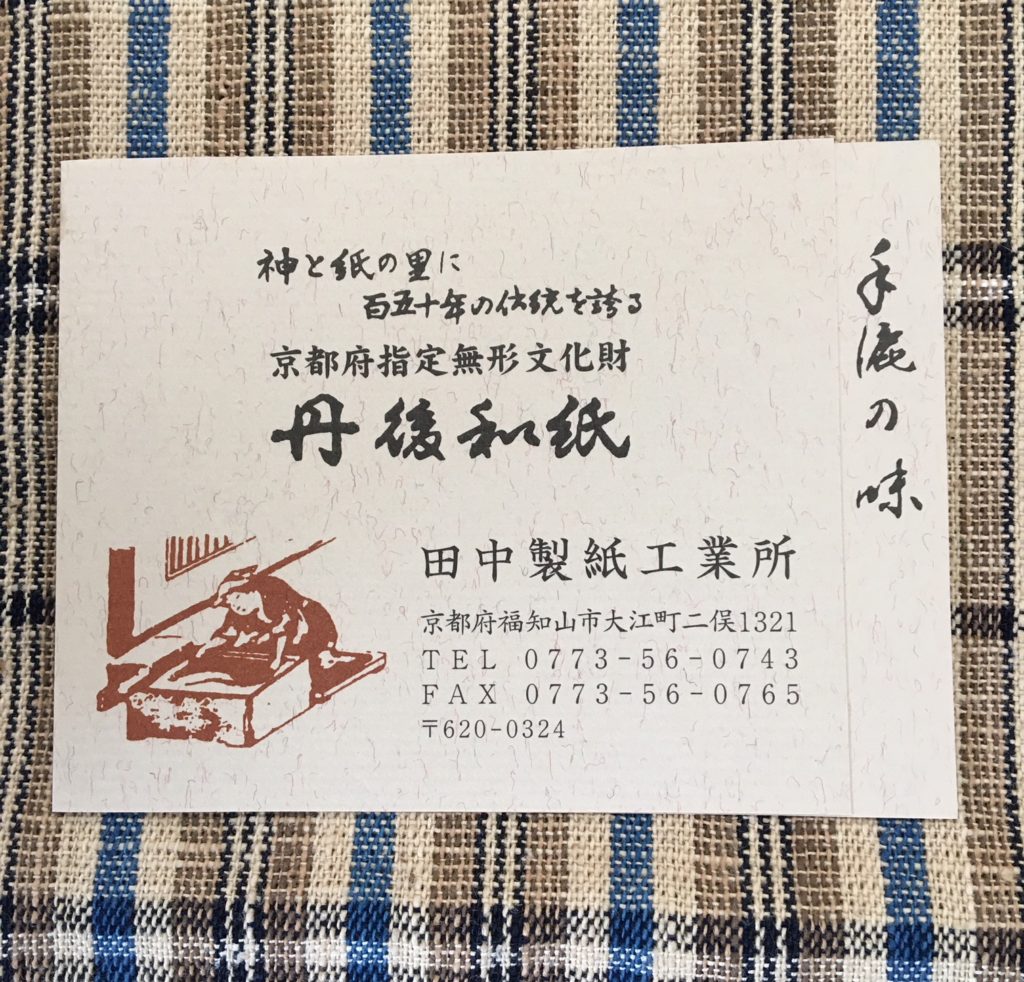 神と紙の里に
百五十年の伝統を誇る
京都府指定無形文化財
丹後和紙
田中製紙工業所
京都府福知山市大江町二俣1321
TEL 0773-56-0743
FAX 0773-56-0765
〒620-0324
手漉の味